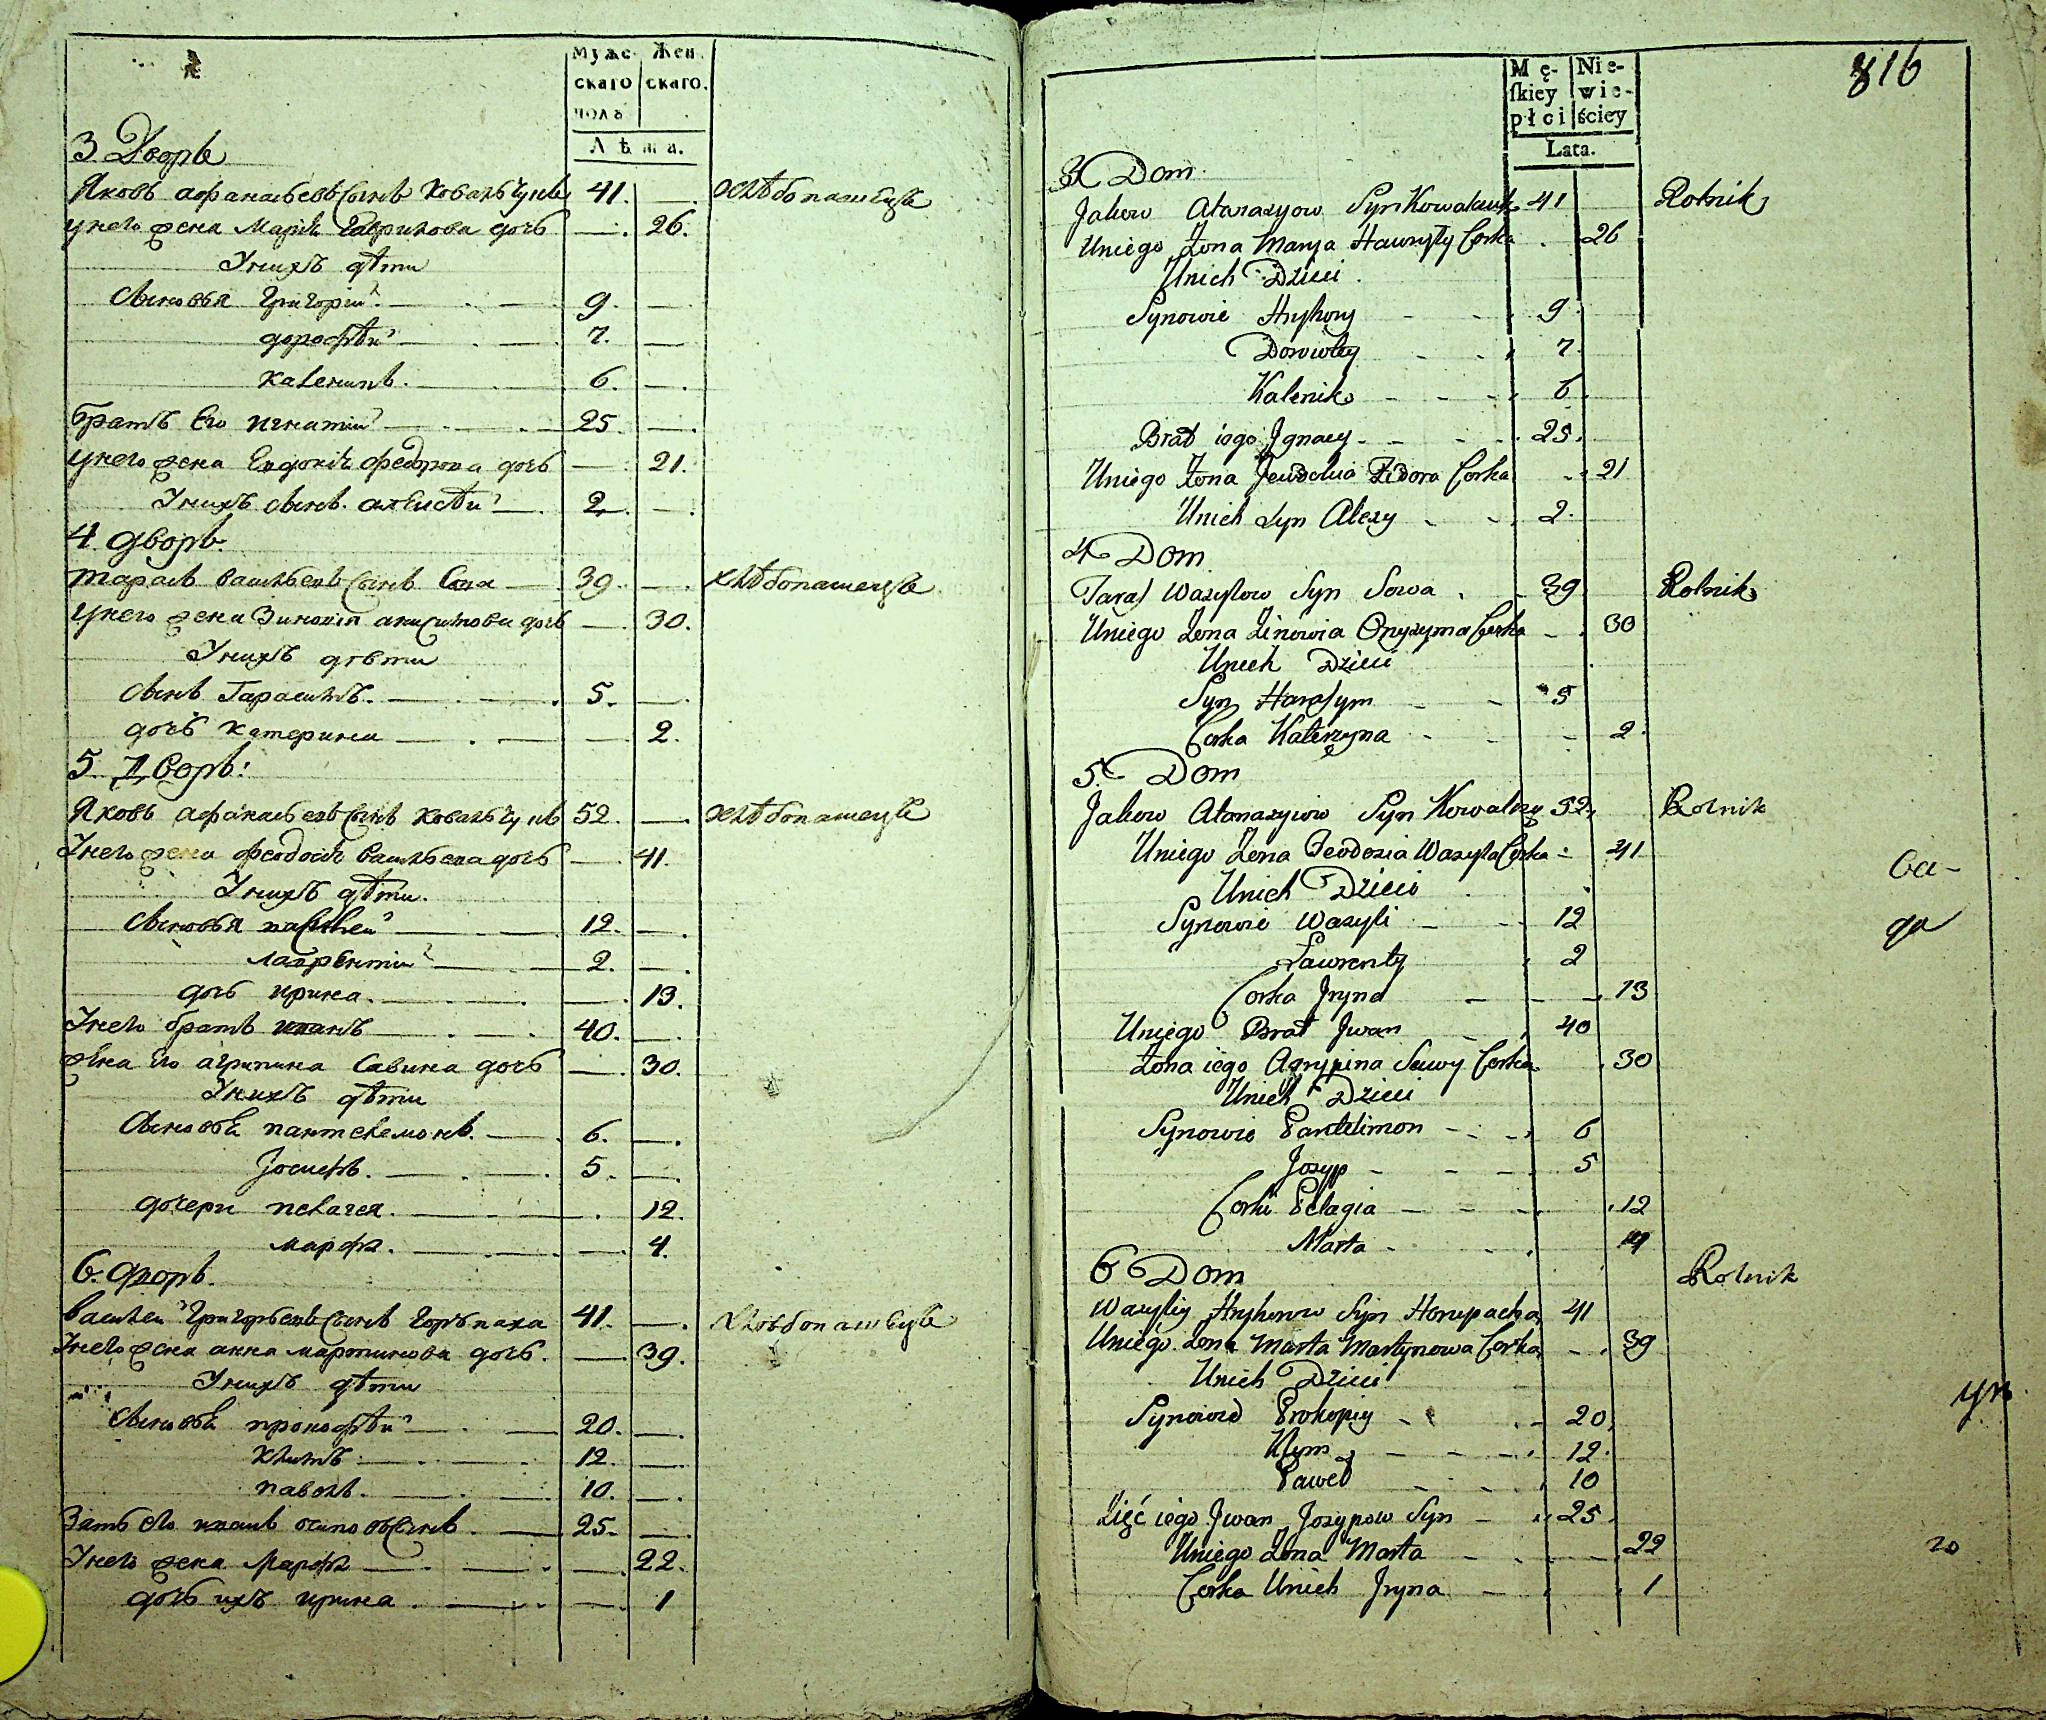 Мужс- Жен.
скаго скаго.
полъ
Лѣта.
3 Дворъ
Яковъ афанасьевъ сынъ Ковальчукъ 41. — хлѣбопашецъ
унего жена Марія Гаврилова дочь — 26.
Унихъ дѣти
Сыновья Григорій — 9. —
дорофѣй — 7. —
каленикъ. — 6. —
братъ Его игнатій — 25. —
унего жена Евдокія феодорова дочь — 21.
Унихъ сынъ алексѣй — 2. —
4. дворъ.
тарасъ васильевъ сынъ Сова — 39. — хлѣбопашецъ
унего жена Зиновія анисимова дочь — 30.
Унихъ дѣти
сынъ Гарасимъ. — 5. —
дочь катерина — — 2.
5. Дворъ:
Яковъ афанасьевъ сынъ ковальчукъ 52. — хлѣбопашецъ
Унего жена феодосія васильева дочь — 41.
Унихъ дѣти.
Сыновья василей — 12. —
лаврентій — 2. —
дочь ирина. — — 13.
Унего братъ иванъ — 40. —
жена Его агрипина Савина дочь — 30.
Унихъ дѣти
Сыновья пантелемонъ. — 6. —
Іосифъ. — 5. —
дочери пелагея. — — 12.
марфа. — — 4.
6. дворъ.
василей Григорьевъ сынъ Горѣпаха 41. — хлѣбопашецъ
Унего жена анна мартинова дочь. — 39.
Унихъ дѣти
Сыновья прокофѣй — 20. —
климъ — 12. —
павелъ. — 10. —
Зять его иванъ осиповъ сынъ. — 25. —
Унего жена Марфа — — 22.
дочь ихъ ирина. — — 1
816
Mę- Nie-
ſkiey wie-
płci ściey
Lata.
3 Dom.
Jakow Atanazyow Syn Kowalczuk 41 Rolnik
Uniego Żona Marya Hawryły Corka . 26
Unich Dzieci.
Synowie Hryhory - - 9
Dorowtey - - 7
Kalenik - - - 6
Brat iego Jgnacy - - - 25.
Uniego Żona Jewdokia Fedora Corka - 21
Unich Syn Alexy - - 2.
4 Dom
Taras Wasylow Syn Sowa . - 39 Rolnik
Uniego Zona Zinowia Onyzyma Corka - . 30
Unich Dzieci
Syn Harasym - - 5
Corka Katerzyna - - - 2.
5. Dom
Jakow Atanazyiow Syn Kowalczy 52 Rolnik
Uniego Zona Teodozia Wasyla Corka - 41
Unich Dzieci
Synowie Wasyli - - 12
Lawrenty . 2
Corka Jryna - - - 13
Uniego Brat Jwan - 40
Żona iego Agrypina Sawy Corka . 30
Unich Dzieci
Synowie Pantelimon - - - 6
Jozyp - - - - 5
Corki Pelagia - - - . 12
Marta - - . 4
6 Dom Rolnik
Wasyliy Hryhorow Syn Horepacha 41
Uniego Zona Marta Martynowa Corka - . 39
Unich Dzieci
Synowie Prokopiy - - - 20
Klym - - - - 12.
Paweł - - . 10
Zięć iego Jwan Jozypow Syn - 25
Uniego Zona Marta - - - 22
Corka Unich Jryna - . . 1